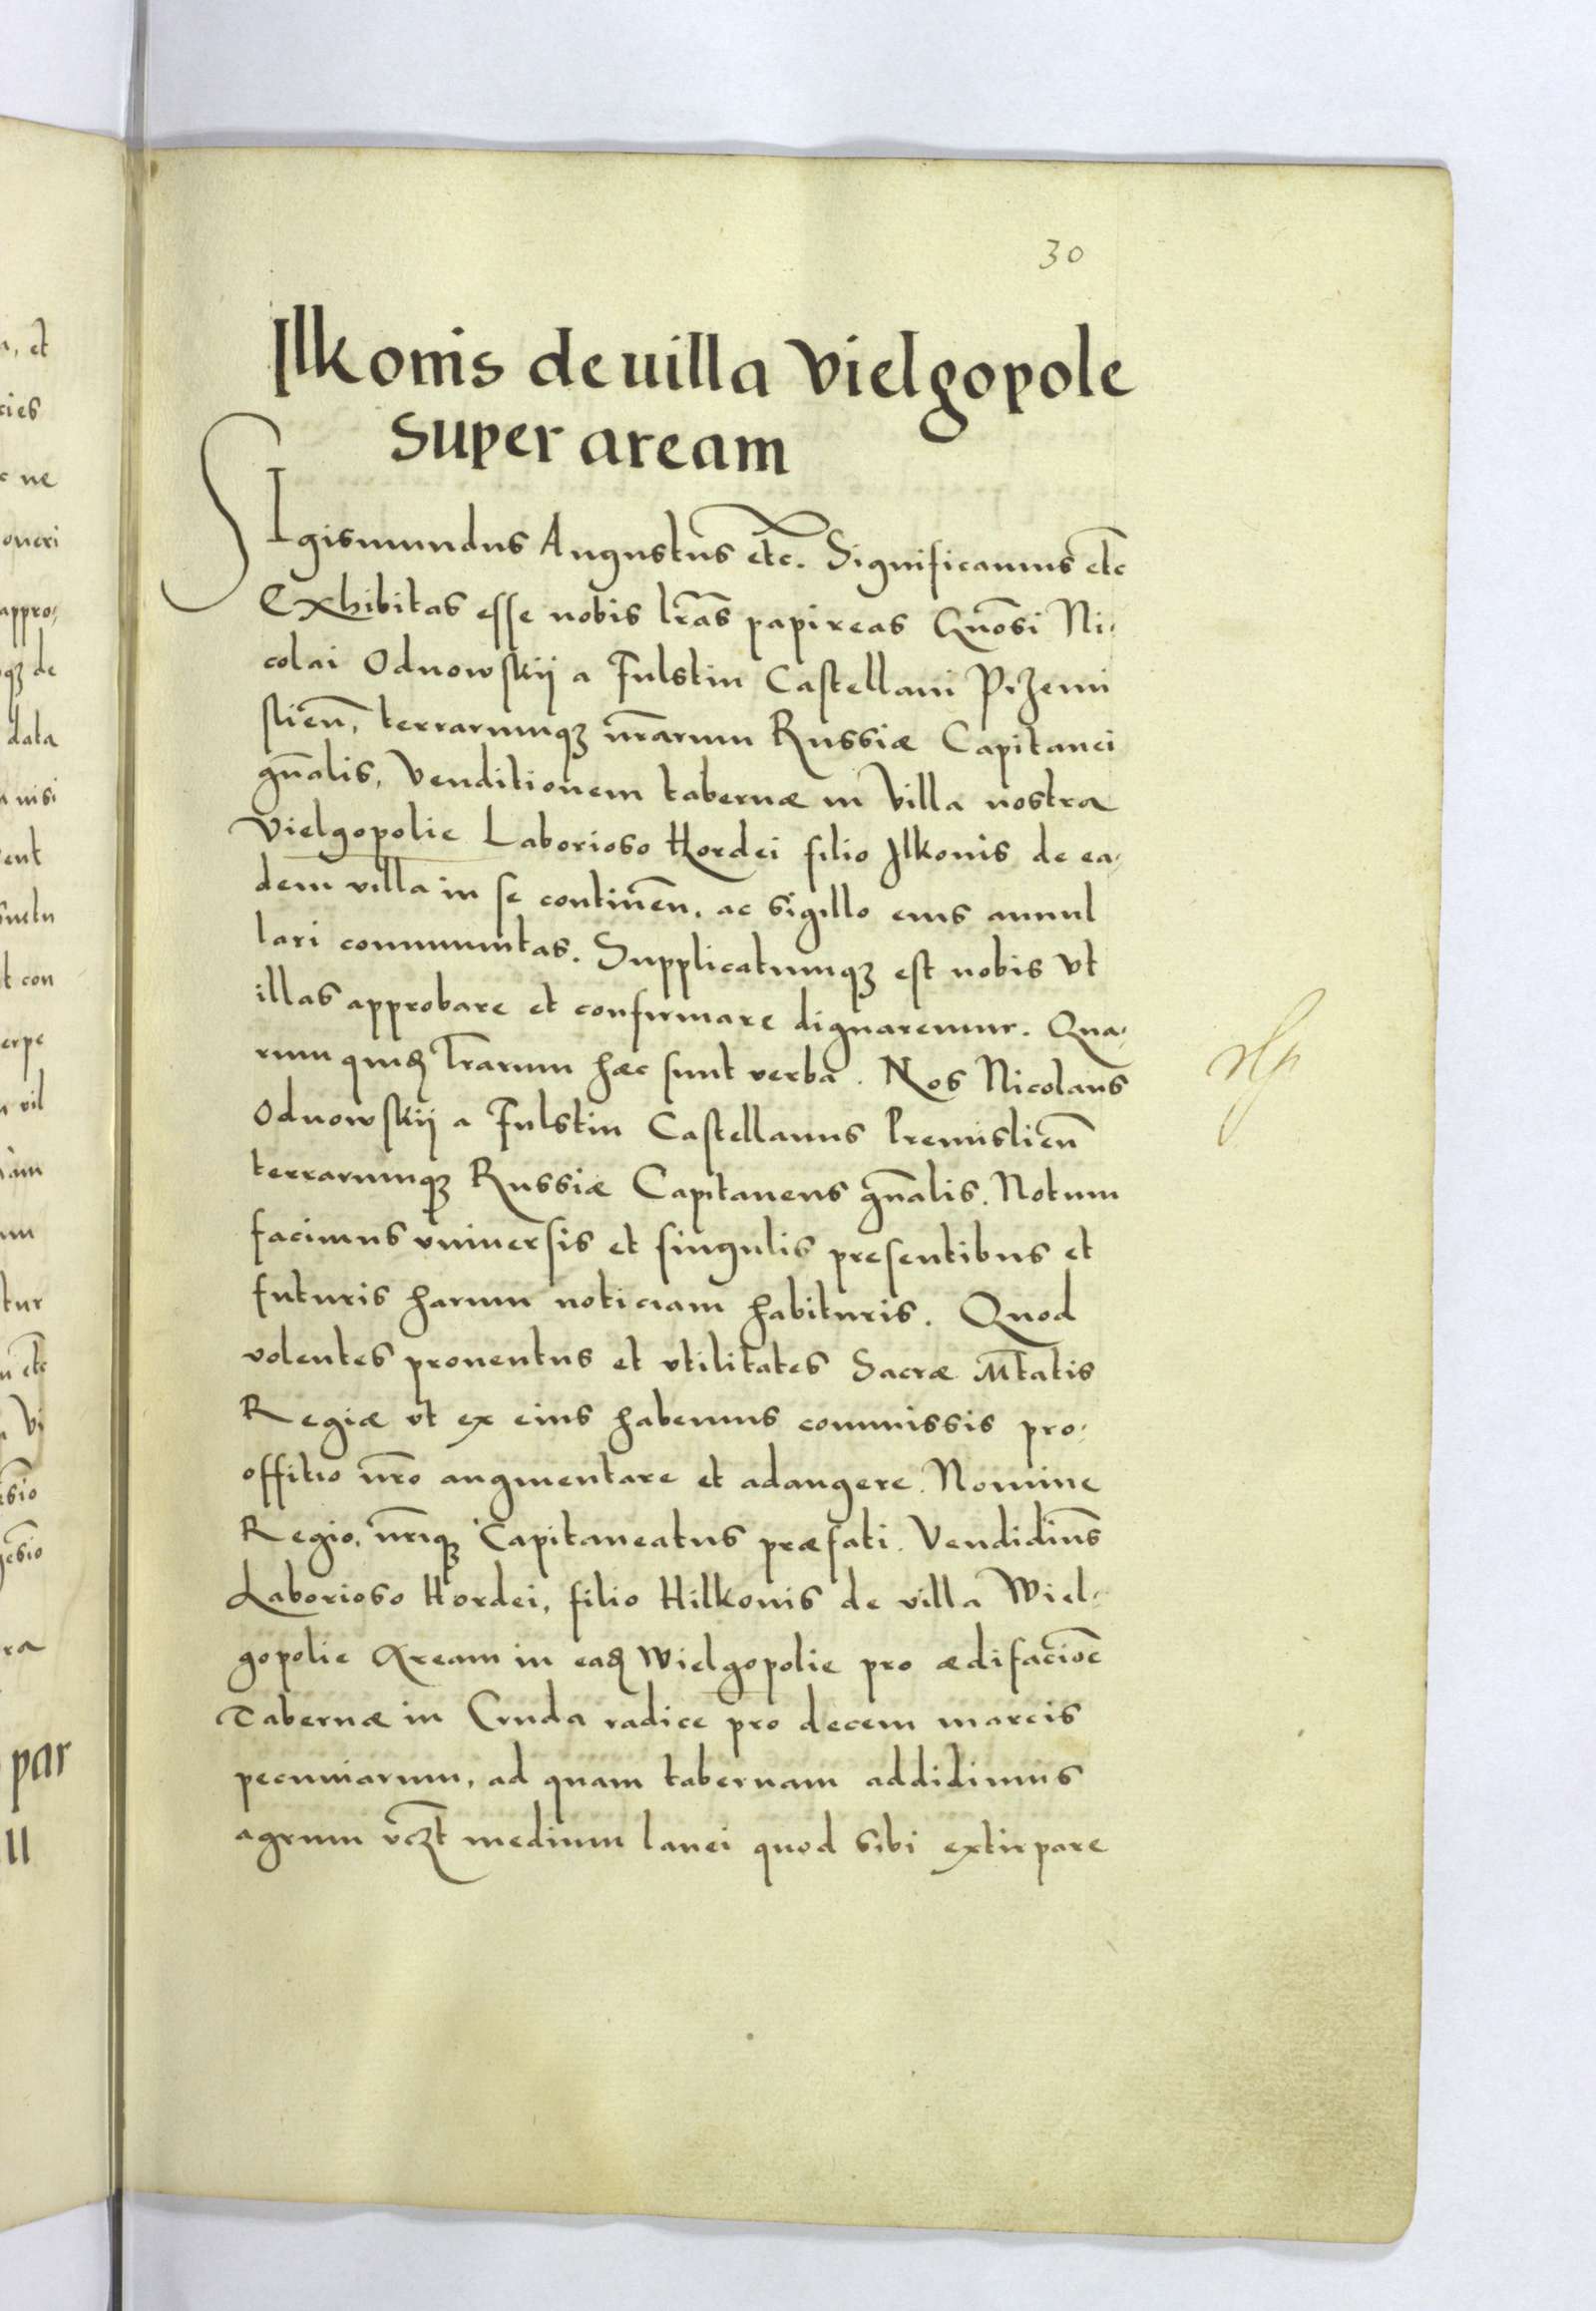 30
Ilkonis de uilla Vielgopole
super aream
SIgismundus Augustus etc. Significamus etc
Exhibitas esse nobis lr̃as papireas Gñosi Ni-
colai Odnowskij a Fulstin Castellani Przemi
slieñ, terrarumqꝫ nr̃arum Russiæ Capitanei
gñalis, Venditionem tabernæ in Villa nostra
Vielgopolie Laborioso Hordei filio Ilkonis de ea-
dem villa in se contineñ, ac sigillo eius annul
lari communitas. Supplicatumqꝫ est nobis vt
illas approbare et confirmare dignaremur. Qua-
rum quid lr̃arum hæc sunt verba. Nos Nicolaus
Odnowskij a Fulstin Castellanus Premislieñ
terrarumqꝫ Russiæ Capitaneus gñalis. Notum
facimus vniuersis et singulis presentibus et
futuris harum noticiam habituris. Quod
volentes prouentus et vtilitates Sacræ Mt̃atis
Regiæ vt ex eius habemus commissis pro-
offitio nr̃o augmentare et adaugere. Nomine
Regio, nr̃iqꝫ Capitaneatus præfati. Vendidim̃s
Laborioso Hordei, filio Hilkonis de villa Wiel-
gopolie Aream in ead Wielgopolie pro ædifaciõe
Tabernæ in Cruda radice pro decem marcis
pecuniarum, ad quam tabernam addidimus
agrum vcꝫt medium lanei quod sibi extirpare